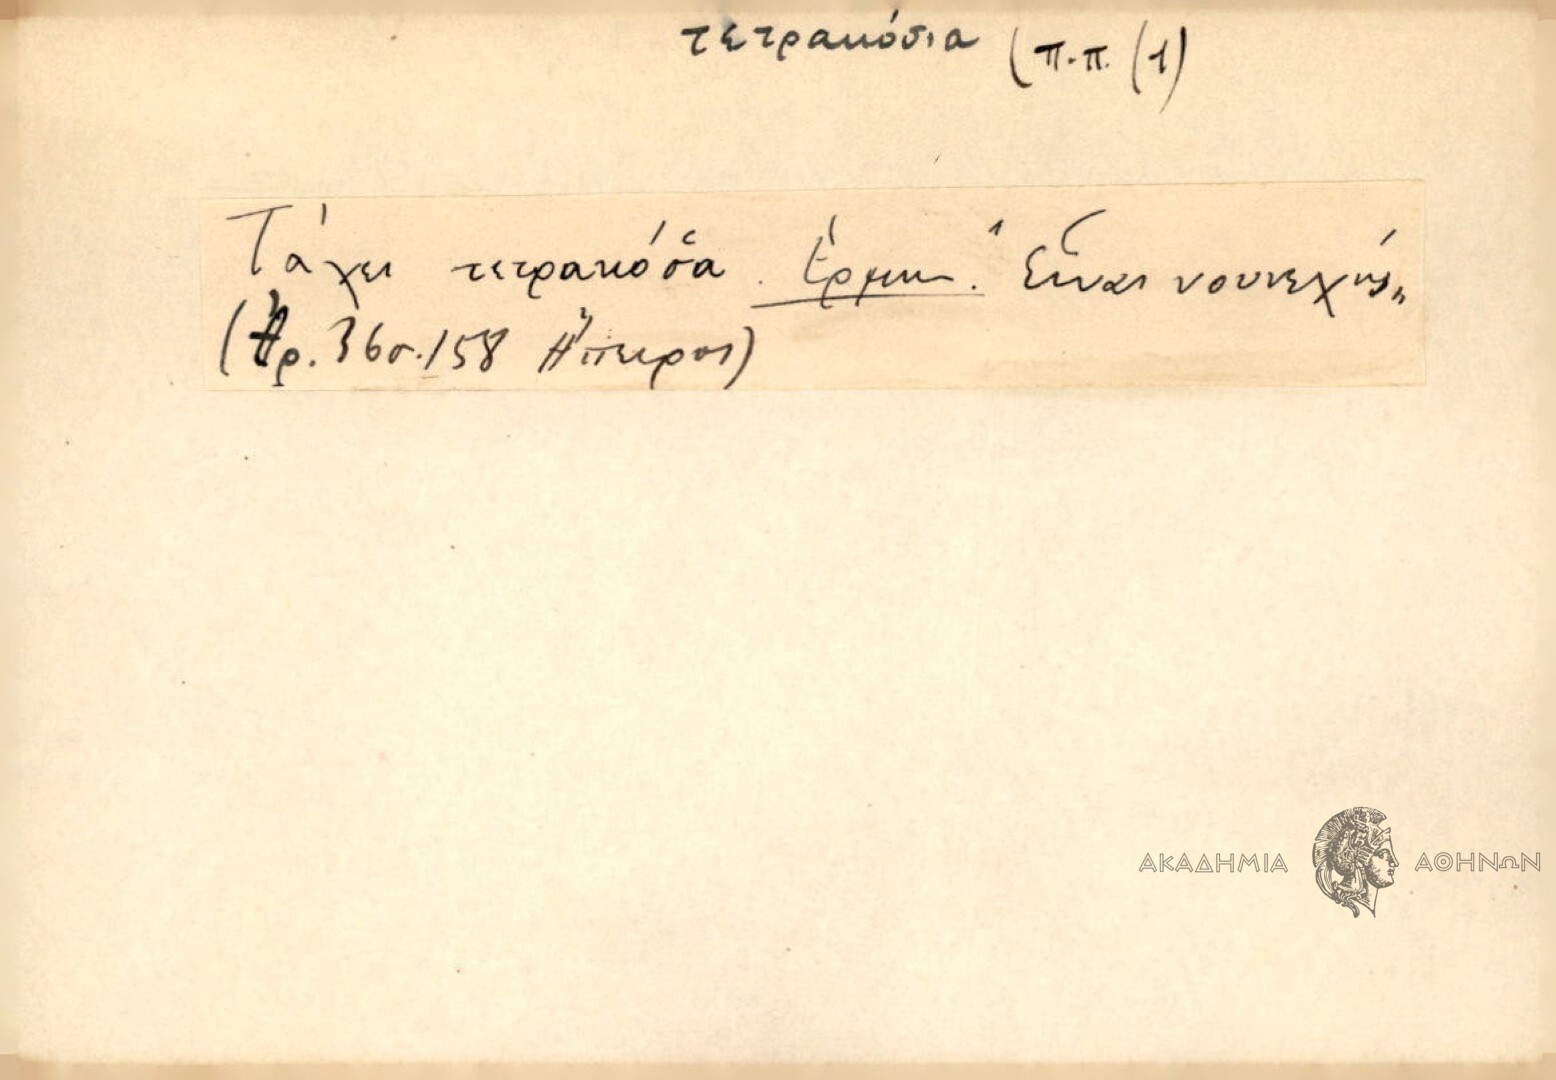 τετρακόσια (π.π. (1)
Τά χει τετρακόσ̌α. Ἑρμην. "Εἶναι νουνεχής„
(Ἀρ. 36 σ. 158 Ἤπειρος)
ΑΚΑΔΗΜΙΑ ΑΘΗΝΩΝ